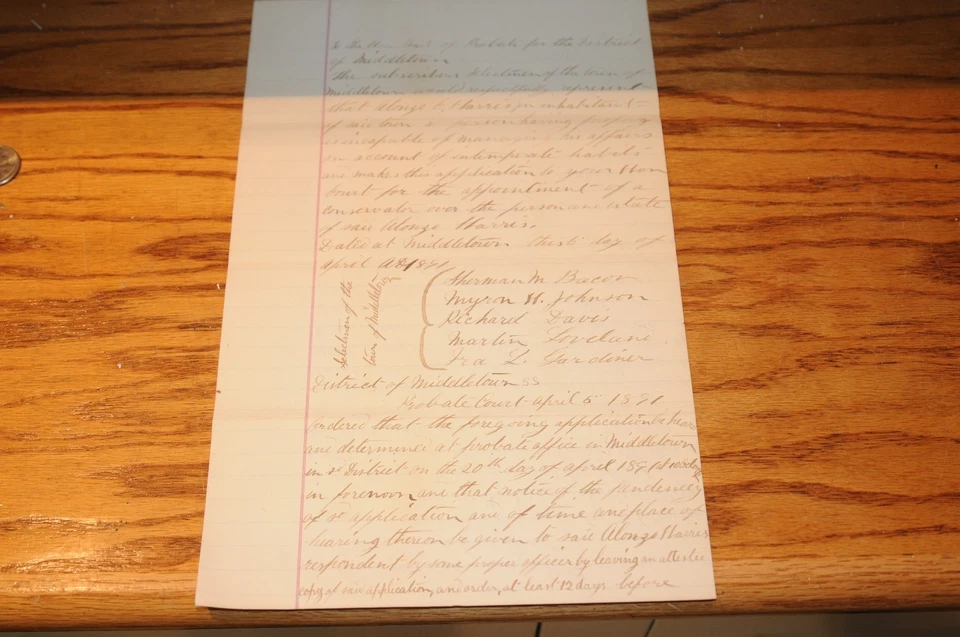 To the Hon Court of Probate for the District
of Middletown
The subscribers Selectmen of the town of
Middletown would respectfully represent
that Alonzo Harris an inhabitant
of said town a person having property
is incapable of managing his affairs
on account of intemperate habits
and makes this application to your Hon
Court for the appointment of a
conservator over the person and estate
of said Alonzo Harris.
Dated at Middletown this 5 day of
April AD 1891
Selectmen of the
town of Middletown
Sherman M. Bacon
Myron H. Johnson
Richard Davis
Martin Loveland
Ira L. Gardiner
District of Middletown SS
Probate Court April 5 1891
Ordered that the foregoing application be heard
and determined at probate office in Middletown
in sd District on the 20th day of April 1891 at
in forenoon, and that notice of the pendency
of sd application and of time and place of
hearing thereon be given to said Alonzo Harris
respondent by some proper officer by leaving an attested
copy of said application, and order, at least 12 days before